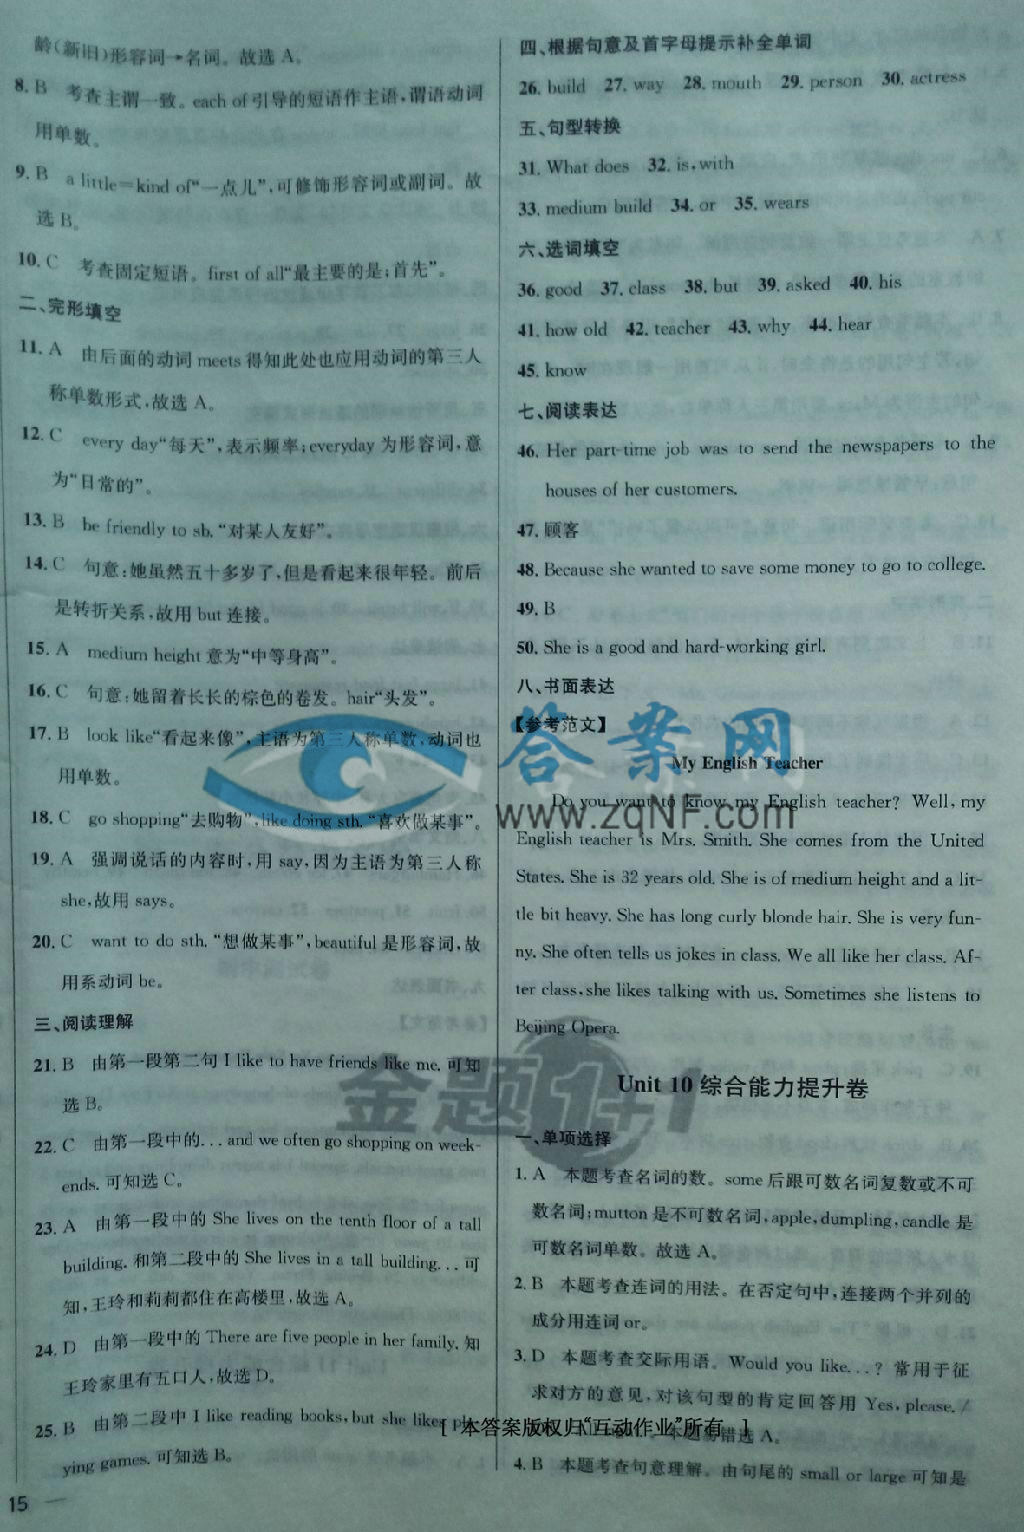 龄(新旧)形容词→名词。故选 A。
8. B 考查主谓一致。each of引导的短语作主语,谓语动词
用单数。
9. B a little=kind of“一点儿”,可修饰形容词或副词。故
选 B。
10. C 考查固定短语。first of all“最主要的是;首先”。
二、完形填空
11. A 由后面的动词 meets 得知此处也应用动词的第三人
称单数形式,故选 A。
12. C every day“每天”,表示频率;everyday 为形容词,意
为“日常的”。
13. B be friendly to sb. “对某人友好”。
14. C 句意:她虽然五十多岁了,但是看起来很年轻。前后
是转折关系,故用 but 连接。
15. A medium height 意为“中等身高”。
16. C 句意:她留着长长的棕色的卷发。hair“头发”。
17. B look like“看起来像”,主语为第三人称单数,动词也
用单数。
18. C go shopping“去购物”,like doing sth. “喜欢做某事”。
19. A 强调说话的内容时,用 say,因为主语为第三人称
she,故用 says。
20. C want to do sth. “想做某事”,beautiful 是形容词,故
用系动词 be。
三、阅读理解
21. B 由第一段第二句 I like to have friends like me. 可知
选 B。
22. C 由第一段中的... and we often go shopping on week-
ends. 可知选 C。
23. A 由第一段中的 She lives on the tenth floor of a tall
building. 和第二段中的 She lives in a tall building... 可
知,王玲和莉莉都住在高楼里,故选 A。
24. D 由第一段中的 There are five people in her family. 知
王玲家里有五口人,故选 D。
25. B 由第二段中 I like reading books, but she likes pla-
ying games. 可知选 B。
15
四、根据句意及首字母提示补全单词
26. build 27. way 28. mouth 29. person 30. actress
五、句型转换
31. What does 32. is, with
33. medium build 34. or 35. wears
六、选词填空
36. good 37. class 38. but 39. asked 40. his
41. how old 42. teacher 43. why 44. hear
45. know
七、阅读表达
46. Her part-time job was to send the newspapers to the
houses of her customers.
47. 顾客
48. Because she wanted to save some money to go to college.
49. B
50. She is a good and hard-working girl.
八、书面表达
【参考范文】
My English Teacher
Do you want to know my English teacher? Well, my
English teacher is Mrs. Smith. She comes from the United
States. She is 32 years old. She is of medium height and a lit-
tle bit heavy. She has long curly blonde hair. She is very fun-
ny. She often tells us jokes in class. We all like her class. Af-
ter class, she likes talking with us. Sometimes she listens to
Beijing Opera.
Unit 10 综合能力提升卷
一、单项选择
1. A 本题考查名词的数。some 后跟可数名词复数或不可
数名词;mutton 是不可数名词,apple, dumpling, candle 是
可数名词单数。故选 A。
2. B 本题考查连词的用法。在否定句中,连接两个并列的
成分用连词 or。
3. D 本题考查交际用语。Would you like...? 常用于征
求对方的意见,对该句型的肯定回答用 Yes, please. /
本题易错选 A。
4. B 本题考查句意理解。由句尾的 small or large 可知是
答案网
www.zqNF.com
金题1+1
[ 本答案版权归“互动作业”所有 ]